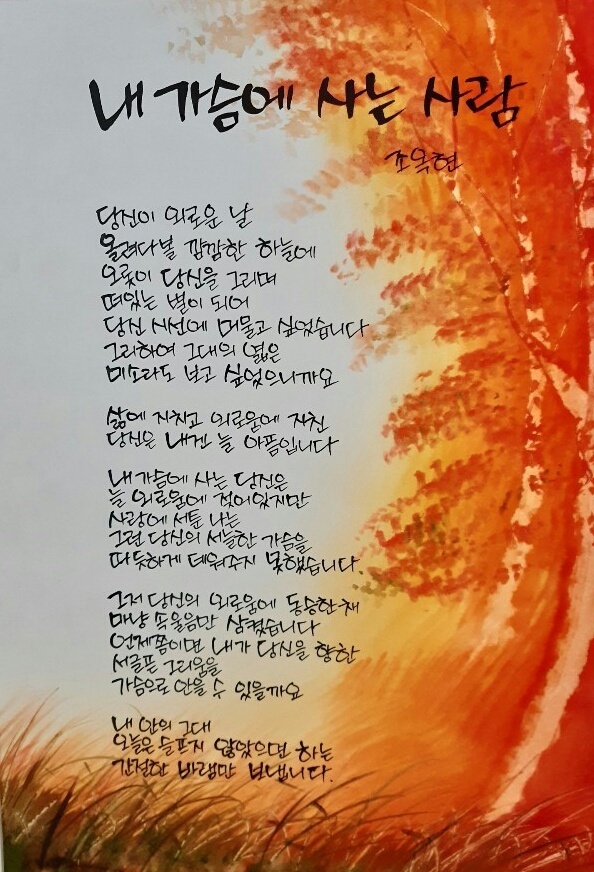 내 가슴에 사는 사람
조옥현
당신이 외로운 날
올려다볼 깜깜한 하늘에
오롯이 당신을 그리며
떠있는 별이 되어
당신 시선에 머물고 싶었습니다
그리하여 그대의 엷은
미소라도 보고 싶었으니까요
삶에 지치고 외로움에 지친
당신은 내겐 늘 아픔입니다
내 가슴에 사는 당신은
늘 외로움에 젖어있지만
사랑에 서툰 나는
그런 당신의 서늘한 가슴을
따듯하게 데워주지 못했습니다.
그저 당신의 외로움에 동승한 채
마냥 속울음만 삼켰습니다
언제쯤이면 내가 당신을 향한
서글픈 그리움을
가슴으로 안을 수 있을까요
내 안의 그대
오늘은 슬프지 않았으면 하는
간절한 바램만 보냅니다.